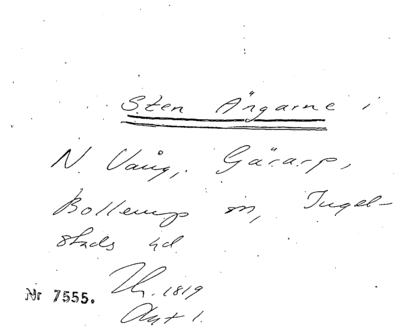 Sten Ängarne i
N. Vång, Gärarp,
Bollerup m, Ingel-
stads hd
Nr 7555. Th. 1819
Ant 1.